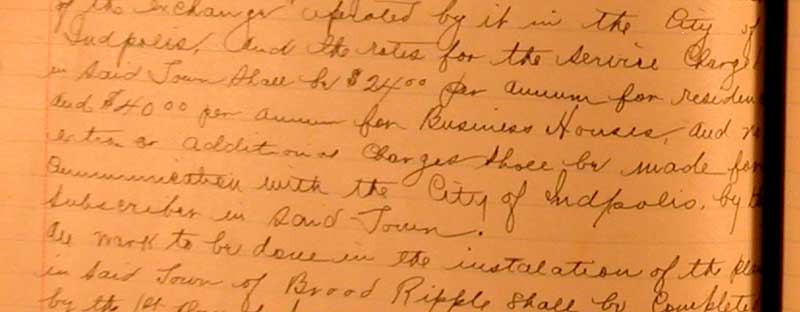 of the exchange operated by it in the City of
Indpolis, and the rates for the service Charged
in Said Town Shall be $24.00 per annum for residen
and $40.00 per annum for Business Houses, and no
extra or additional Charges shall be made for
Communication with the City of Indpolis, by th
Subscriber in Said Town.
All work to be done in the instalation of the plan
in Said Town of Broad Ripple Shall be Complete
by the 1st